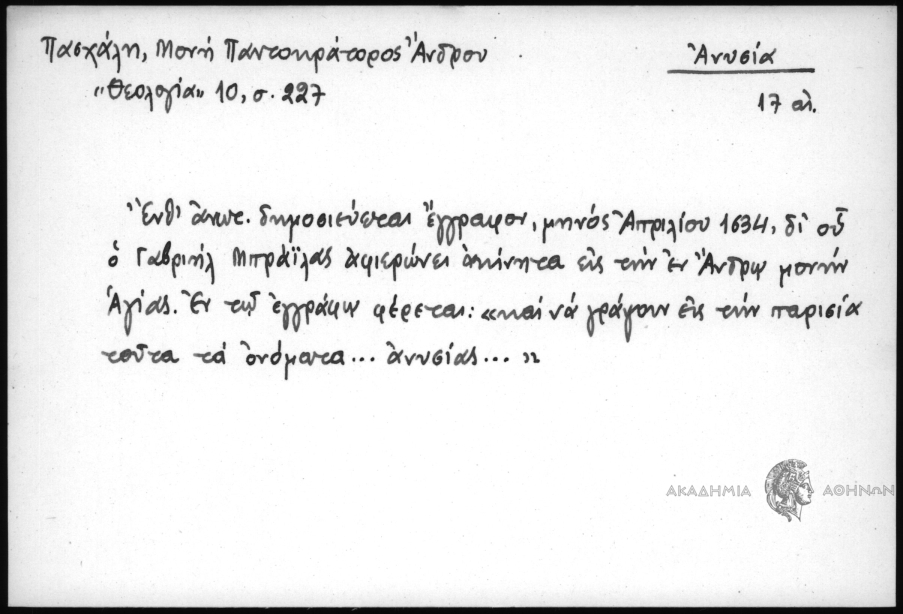 Πασχάλη, Μονή Παντοκράτορος Ἄνδρου
"Θεολογία" 10, σ. 227
Ἀνυσία
17 αἰ.
Ἔνθ' ἀνωτ. δημοσιεύεται ἔγγραφον, μηνός Ἀπριλίου 1634, δι' οὗ
ὁ Γαβριήλ Μπράϊλας ἀφιερώνει ἀκίνητα εἰς τήν ἐν Ἄνδρῳ μονήν
Ἁγίας. Ἐν τῷ ἐγγράφῳ φέρεται: «καί νά γράψουν εἰς τήν παρισία
τοῦτα τά ὀνόματα... ἀνυσίας... »
ΑΚΑΔΗΜΙΑ ΑΘΗΝΩΝ